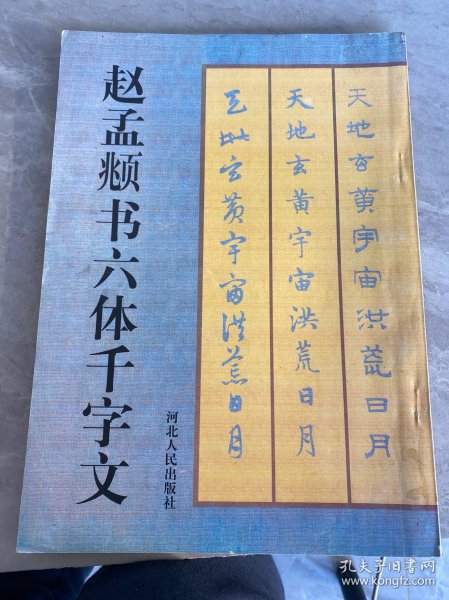 赵孟頫书六体千字文
河北人民出版社
天地玄黄宇宙洪荒日月
天地玄黄宇宙洪荒日月
天地玄黄宇宙洪荒日月
孔夫子旧书网
book.kongfz.com